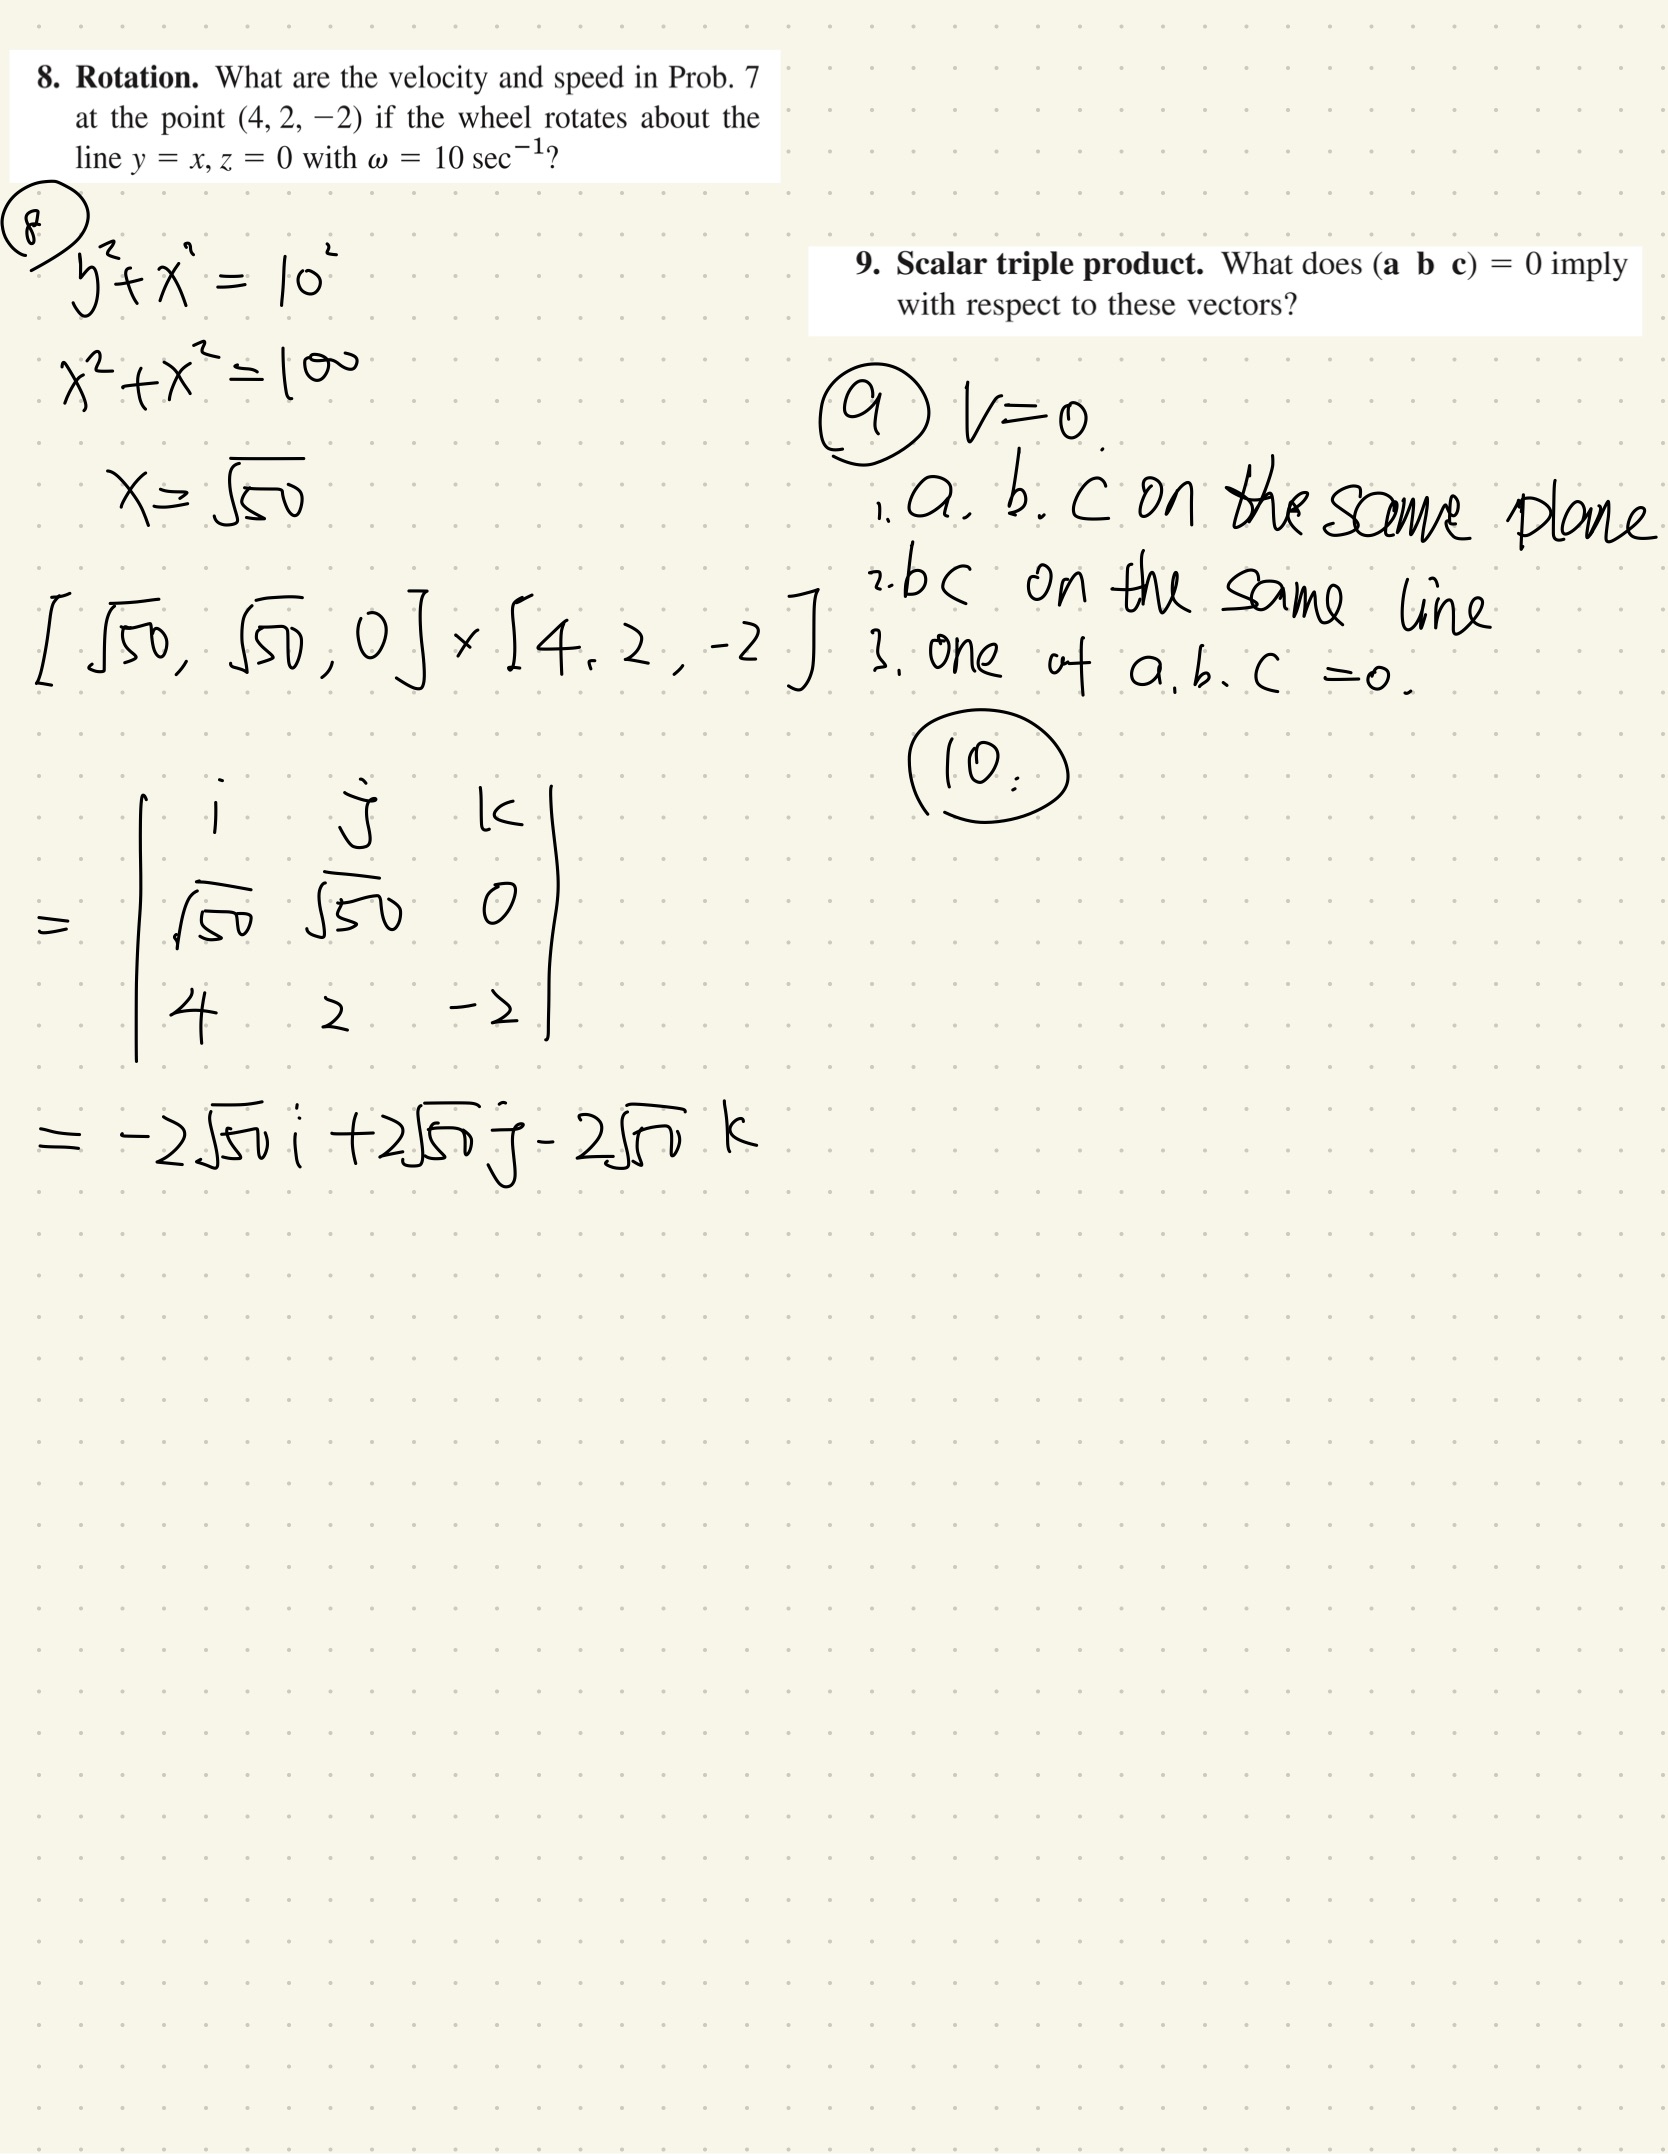 8. Rotation. What are the velocity and speed in Prob. 7
at the point (4, 2, −2) if the wheel rotates about the
line y = x, z = 0 with ω = 10 sec⁻¹?
8
y² + x² = 10²
x² + x² = 100
x = √50
[√50, √50, 0] × [4, 2, -2]
= | i j k |
| √50 √50 0 |
| 4 2 -2 |
= -2√50 i + 2√50 j - 2√50 k
9. Scalar triple product. What does (a b c) = 0 imply
with respect to these vectors?
9 V=0.
1. a. b. c on the same plane
2. bc on the same line
3. one of a. b. c =0.
10.